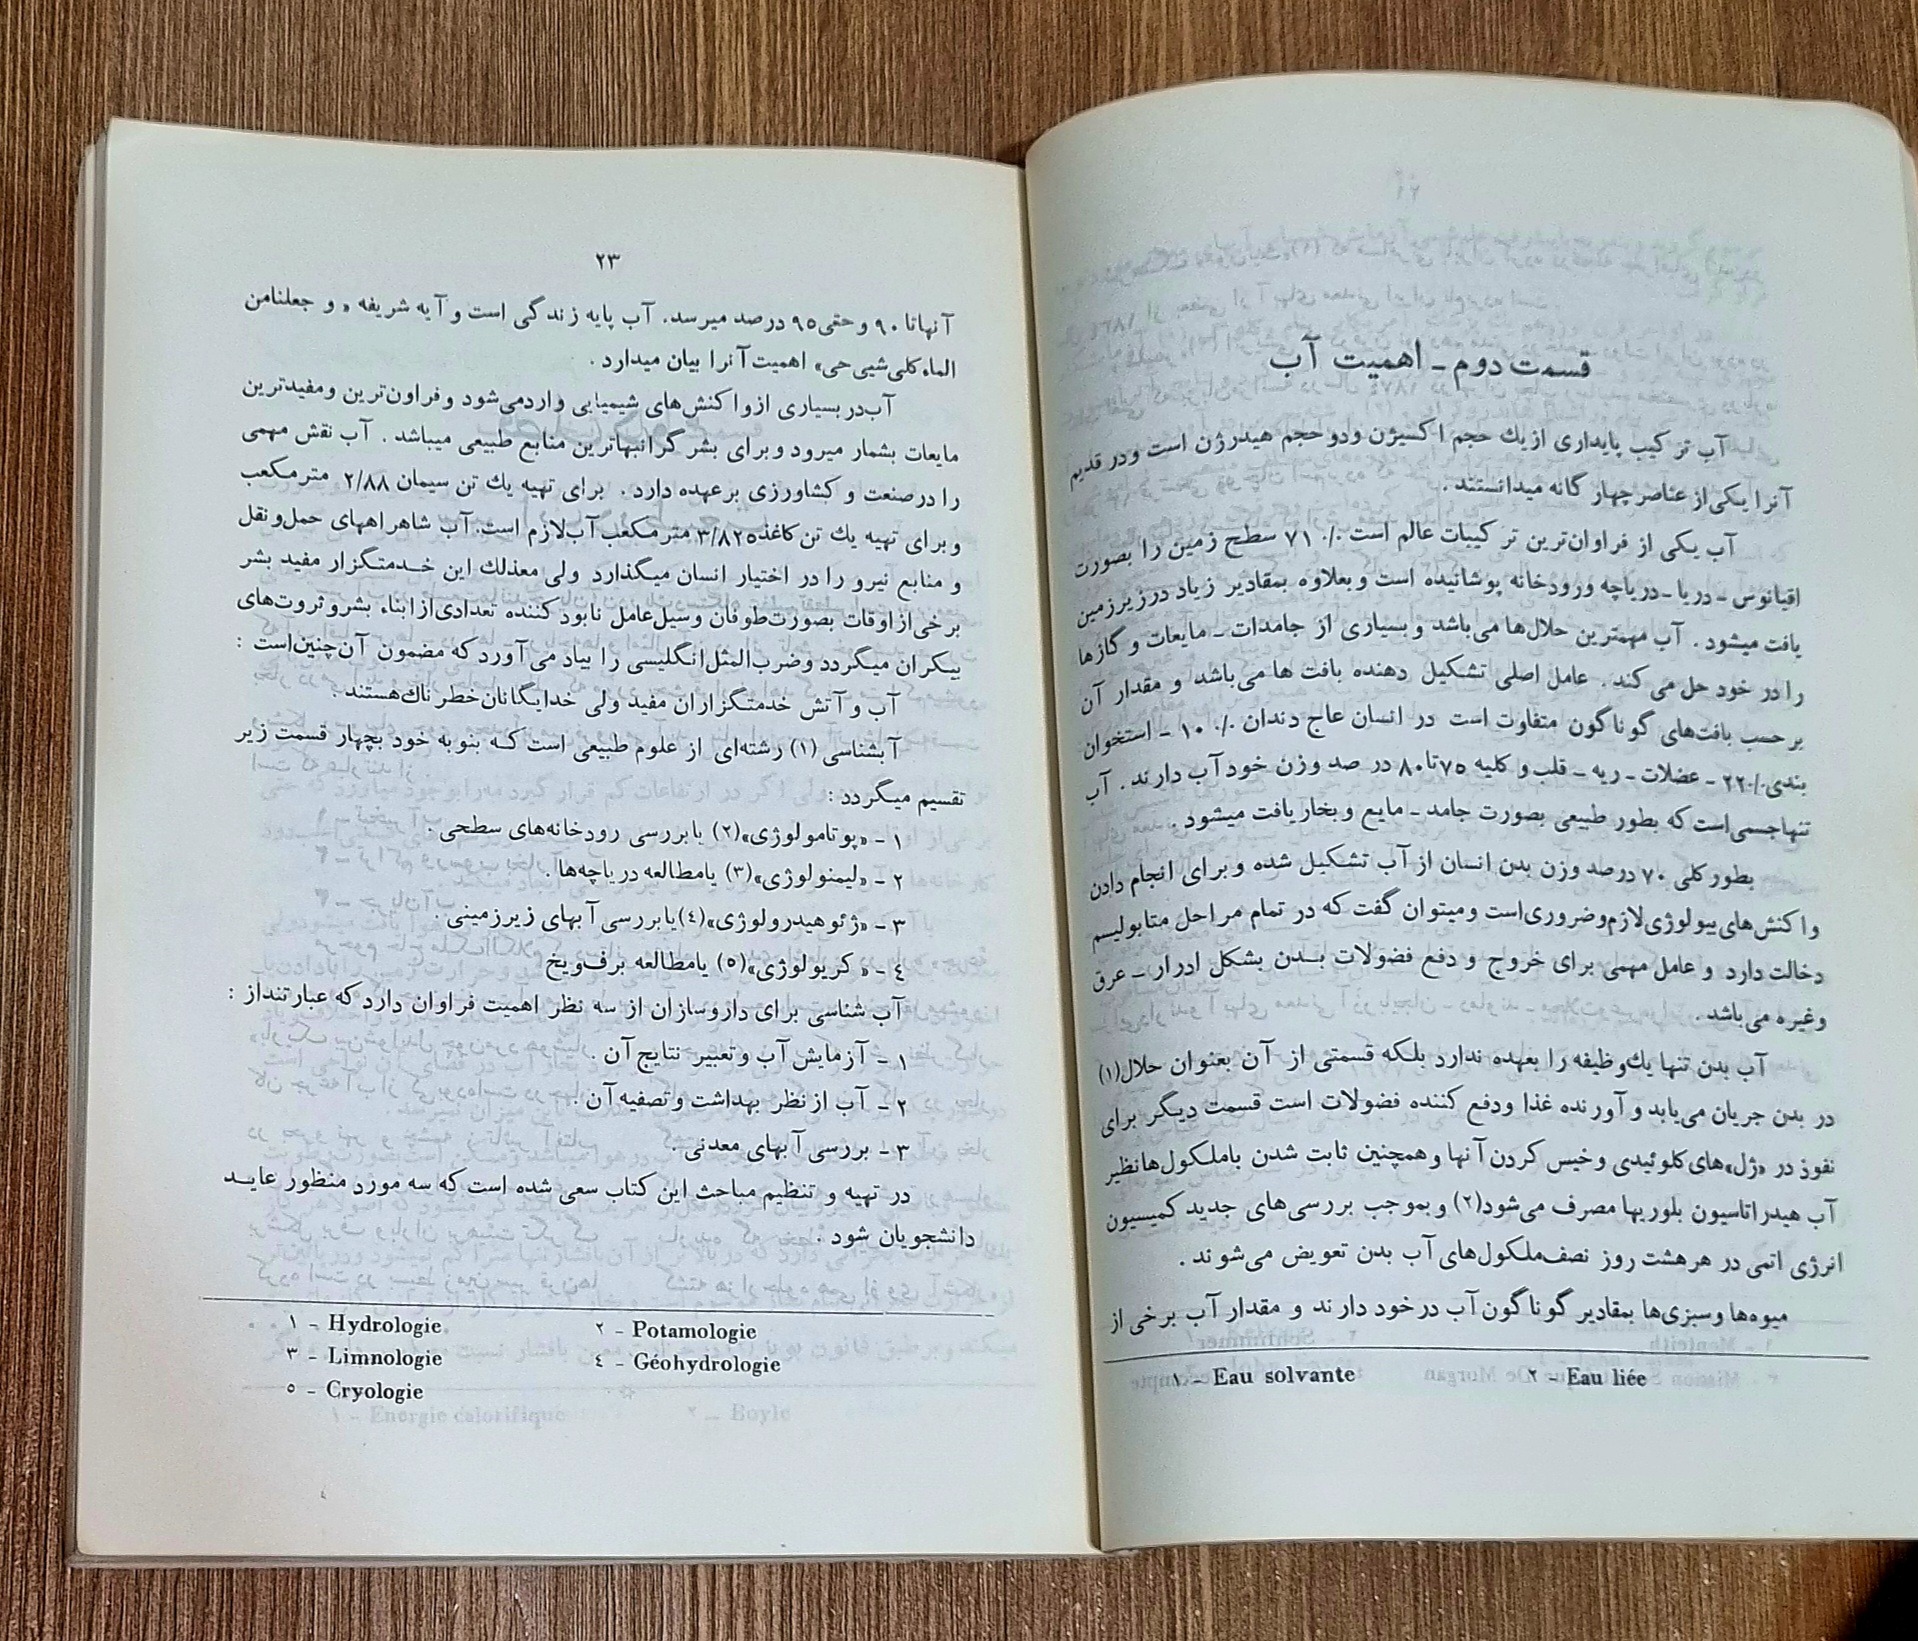 قسمت دوم ـ اهمیت آب
آب ترکیب پایداری ازیك حجم اکسیژن ودو حجم هیدرژن است ودر قدیم
آنرا یکی از عناصر چهار گانه میدانستند .
آب یکی از فراوان‌ترین ترکیبات عالم است ٪ ۷۱ سطح زمین را بصورت
اقیانوس ـ دریا ـ دریاچه ورودخانه پوشانیده است وبعلاوه بمقادیر زیاد درزیرزمین
یافت میشود . آب مهمترین حلال‌ها می‌باشد وبسیاری از جامدات ـ مایعات و گازها
را در خود حل می‌کند . عامل اصلی تشکیل دهنده بافت ها می‌باشد و مقدار آن
برحسب بافت‌های گوناگون متفاوت است در انسان عاج دندان ٪ ۱۰ ـ استخوان
بندی ٪ ۲۲ ـ عضلات ـ ریه ـ قلب و کلیه ۷۵تا۸۰ در صد وزن خود آب دارند . آب
تنهاجسمی‌است که بطور طبیعی بصورت جامد ـ مایع و بخار یافت میشود .
بطور کلی ۷۰ درصد وزن بدن انسان از آب تشکیل شده و برای انجام دادن
واکنش‌های بیولوژی لازم‌وضروری‌است ومیتوان گفت که در تمام مراحل متابولیسم
دخالت دارد و عامل مهمی برای خروج و دفع فضولات بـدن بشکل ادرار ـ عرق
وغیره می‌باشد .
آب بدن تنها یك‌وظیفه را بعهده ندارد بلکه قسمتی از آن بعنوان حلال(۱)
در بدن جریان می‌یابد و آورنده غذا ودفع کننده فضولات است قسمت دیگر برای
نفوذ در «ژل»های کلوئیدی وخیس کردن آنها وهمچنین ثابت شدن باملکول‌هانظیر
آب هیدراتاسیون بلوریها مصرف می‌شود(۲) وبموجب بررسی‌های جدید کمیسیون
انرژی اتمی در هرهشت روز نصف‌ملکول‌های آب بدن تعویض می‌شوند .
میوه‌ها وسبزی‌ها بمقادیر گوناگون آب درخود دارند و مقدار آب برخی از
۱ - Eau solvante ۲ - Eau liée
۲۳
آنهاتا ۹۰ وحتی۹۵ درصد میرسد. آب پایه زندگی است و آیه شریفه « و جعلنامن
الماء کلی شیی حی» اهمیت آنرا بیان میدارد .
آب‌در بسیاری ازواکنش‌های شیمیایی واردمی‌شود وفراون‌ترین ومفیدترین
مایعات بشمار میرود وبرای بشر گرانبهاترین منابع طبیعی میباشد . آب نقش مهمی
را درصنعت و کشاورزی برعهده دارد . برای تهیه یك تن سیمان ۲/۸۸ مترمکعب
وبرای تهیه یك تن کاغذ۳/۸۲۵ مترمکعب آب‌لازم است. آب شاهراههای حمل‌ونقل
و منابع نیرو را در اختیار انسان میگذارد ولی معذلك این خـدمتگزار مفید بشر
برخی‌ازاوقات بصورت‌طوفان وسیل‌عامل نابود کننده تعدادی‌ازابناء بشروثروت‌های
بیکران میگردد وضرب‌المثل‌انگلیسی را بیاد می‌آورد که مضمون آن‌چنین‌است :
آب و آتش خدمتگزاران مفید ولی خدایگانان‌خطرناك‌هستند .
آبشناسی (۱) رشته‌ای از علوم طبیعی است کـه بنوبه خود بچهار قسمت زیر
تقسیم میگردد :
۱ - «پوتامولوژی»(۲) یابررسی رودخانه‌های سطحی .
۲ - «لیمنولوژی»(۳) یامطالعه دریاچه‌ها .
۳ - «ژئوهیدرولوژی»(٤)یابررسی آبهای زیرزمینی .
٤ - « کریولوژی»(۵) یامطالعه برف‌ویخ
آب شناسی برای داروسازان از سه نظر اهمیت فراوان دارد که عبارتنداز :
۱ - آزمایش آب وتعبیر نتایج آن .
۲ - آب از نظر بهداشت وتصفیه آن .
۳ - بررسی آبهای معدنی .
در تهیه و تنظیم مباحث این کتاب سعی شده است که سه مورد منظور عایـد
دانشجویان شود .
۱ - Hydrologie ۲ - Potamologie
۳ - Limnologie ٤ - Géohydrologie
۵ - Cryologie